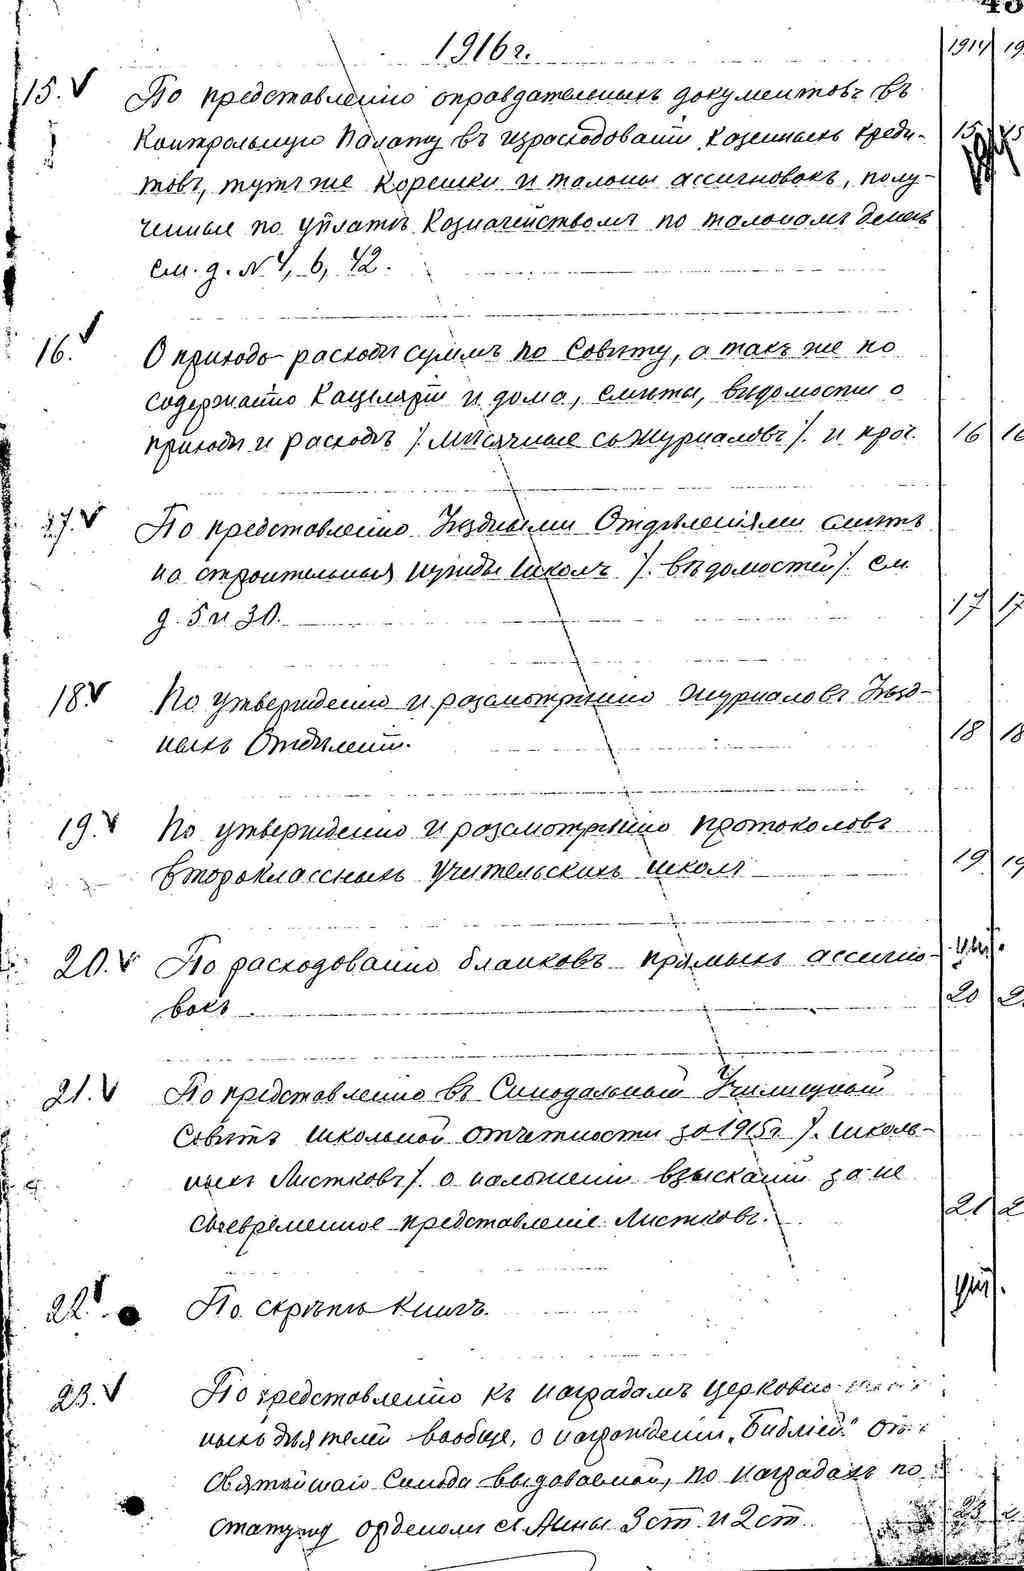 1916 г.
1914 19
15. По представленію оправдательныхъ документовъ въ
Контрольную Палату въ израсходованіи казенныхъ креди-
товъ, тутъ же корешки и талоны ассигновокъ, полу-
ченные по уплатѣ Казначействомъ по талонамъ денегъ
см. д. № 4, 6, 42.
15 15
16. О приходо-расходѣ суммъ по Совѣту, а такъ же по
содержанію Канцеляріи и дома, смѣты, вѣдомости о
приходѣ и расходѣ /. мѣсячные съ журналовъ /. и проч.
16 16
17. По представленію Уѣздными Отдѣленіями смѣтъ
на строительныя нужды школъ /. вѣдомостей /. см.
д. 5 и 30.
17 17
18. По утвержденію и разсмотрѣнію журналовъ Уѣзд-
ныхъ Отдѣленій.
18 18
19. По утвержденію и разсмотрѣнію протоколовъ
второклассныхъ учительскихъ школъ
19 19
20. По расходованію бланковъ прямыхъ ассигно-
вокъ.
20 2
21. По представленію въ Синодальный Училищный
Совѣтъ школьной отчетности за 1915 г. /. школь-
ныхъ Листковъ /. о наложеніи взысканій за не
своевременное представленіе Листковъ.
21 2
22. По скрѣпѣ книгъ.
23. По представленію къ наградамъ церковно
ныхъ дѣятелей вообще, о награжденіи „Библіей“ отъ
Святѣйшаго Синода выдаваемой, по наградахъ по
статуту орденами св Анны 3 ст. и 2 ст.
23 2